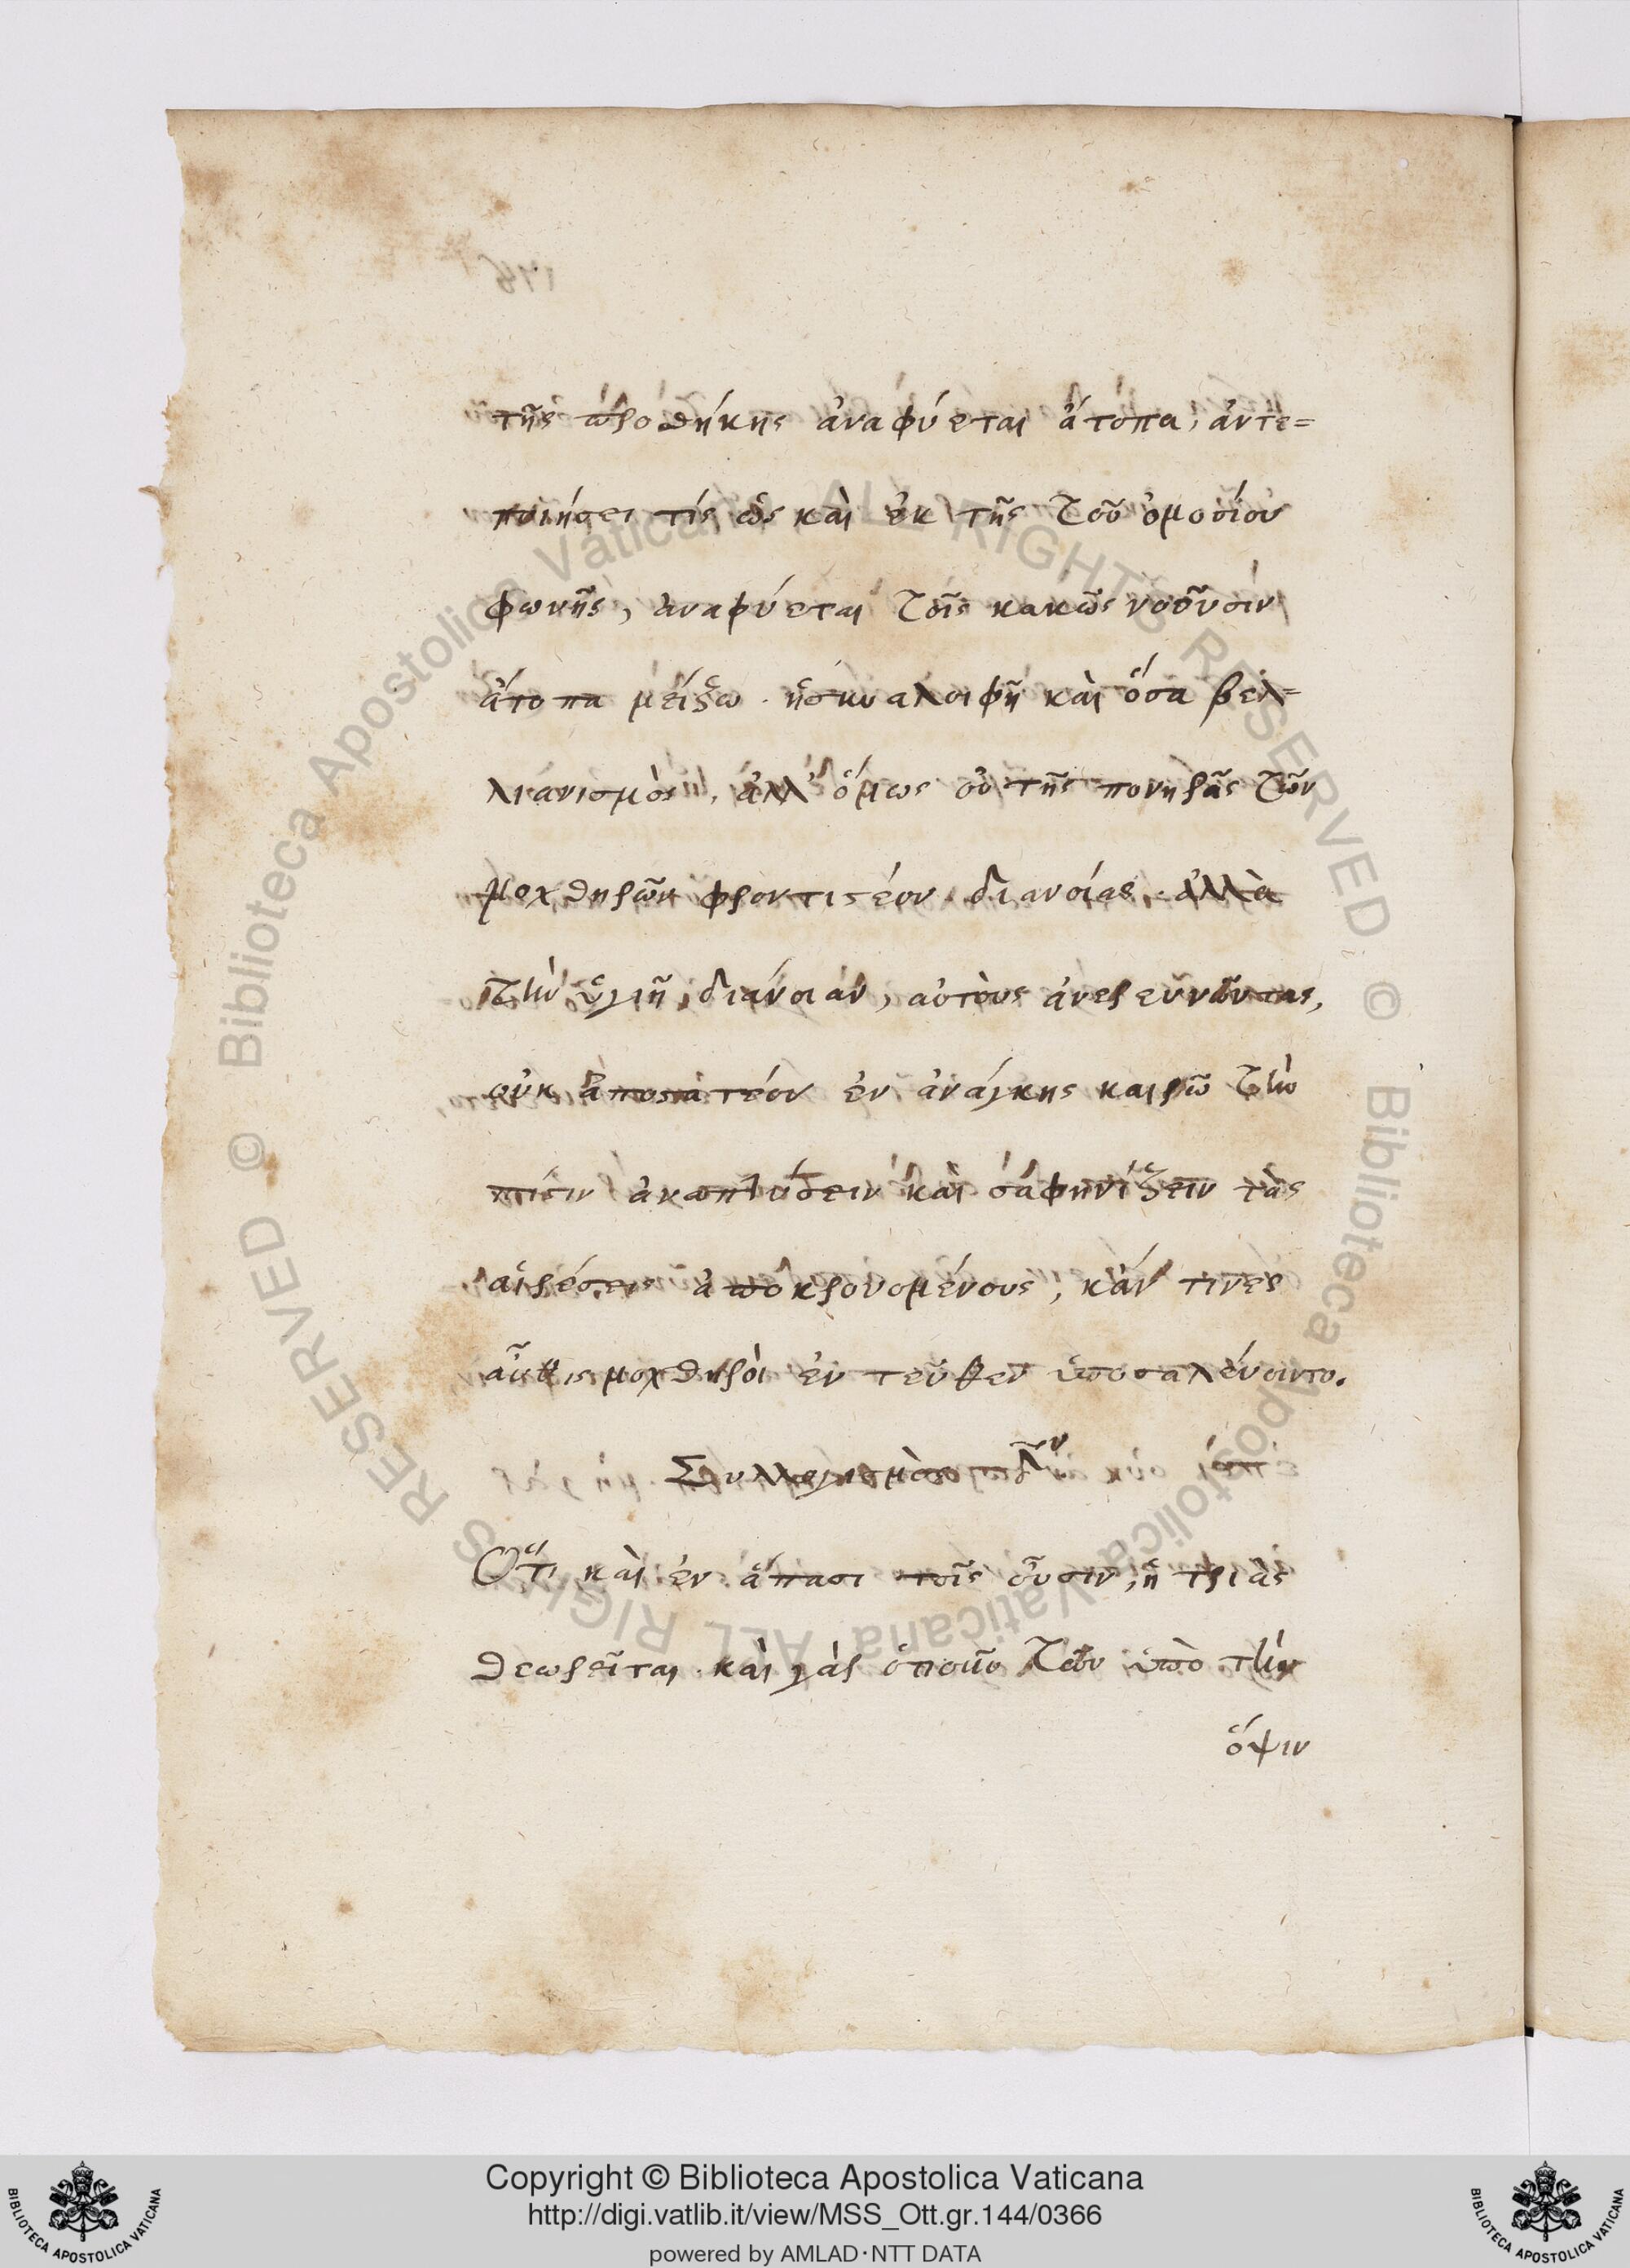 τῆς προθήκης ἀναφύεται ἄτοπα, ἀντε=
ποιήσει τίς ὡς καὶ ἐκ τῆς τοῦ ὁμοσίου
φωνῆς, ἀναφύεται τοῖς κακῶς νοοῦσιν
ἄτοπα μείζω. καὶ ὅσα βελ=
λιανισμὸς, ἀλλ' ὅμως οὐ τῆς πονηρᾶς τῶν
μοχθηρῶν φροντιστέον διανοίας. ἀλλὰ
τὴν ὑγιῆ διάνοιαν, αὐτοὺς ἀνερευνῶντας,
οὐκ ἐν ἀνάγκης καιρῶ τὴν
πίστιν ἀναπτύσειν καὶ σαφηνίζειν τὰς
αἱρέσεις ἀποκρουομένους, κἄν τινες
αὖθις μοχθηροὶ ἐντεῦθεν ὑποσαλεύοιντο.
Συλλογισμὸς
Ὅτι καὶ ἐν ἅπασι τοῖς οὖσιν, ἡ τριὰς
θεωρεῖται. καὶ γὰρ ὁποῖον τῶν ὑπὸ τὴν
ὄψιν
Copyright © Biblioteca Apostolica Vaticana
http://digi.vatlib.it/view/MSS_Ott.gr.144/0366
powered by AMLAD·NTT DATA
BIBLIOTECA APOSTOLICA VATICANA
BIBLIOTECA APOSTOLICA VATICANA
© Biblioteca Apostolica Vaticana ALL RIGHTS RESERVED
© Biblioteca Apostolica Vaticana ALL RIGHTS RESERVED